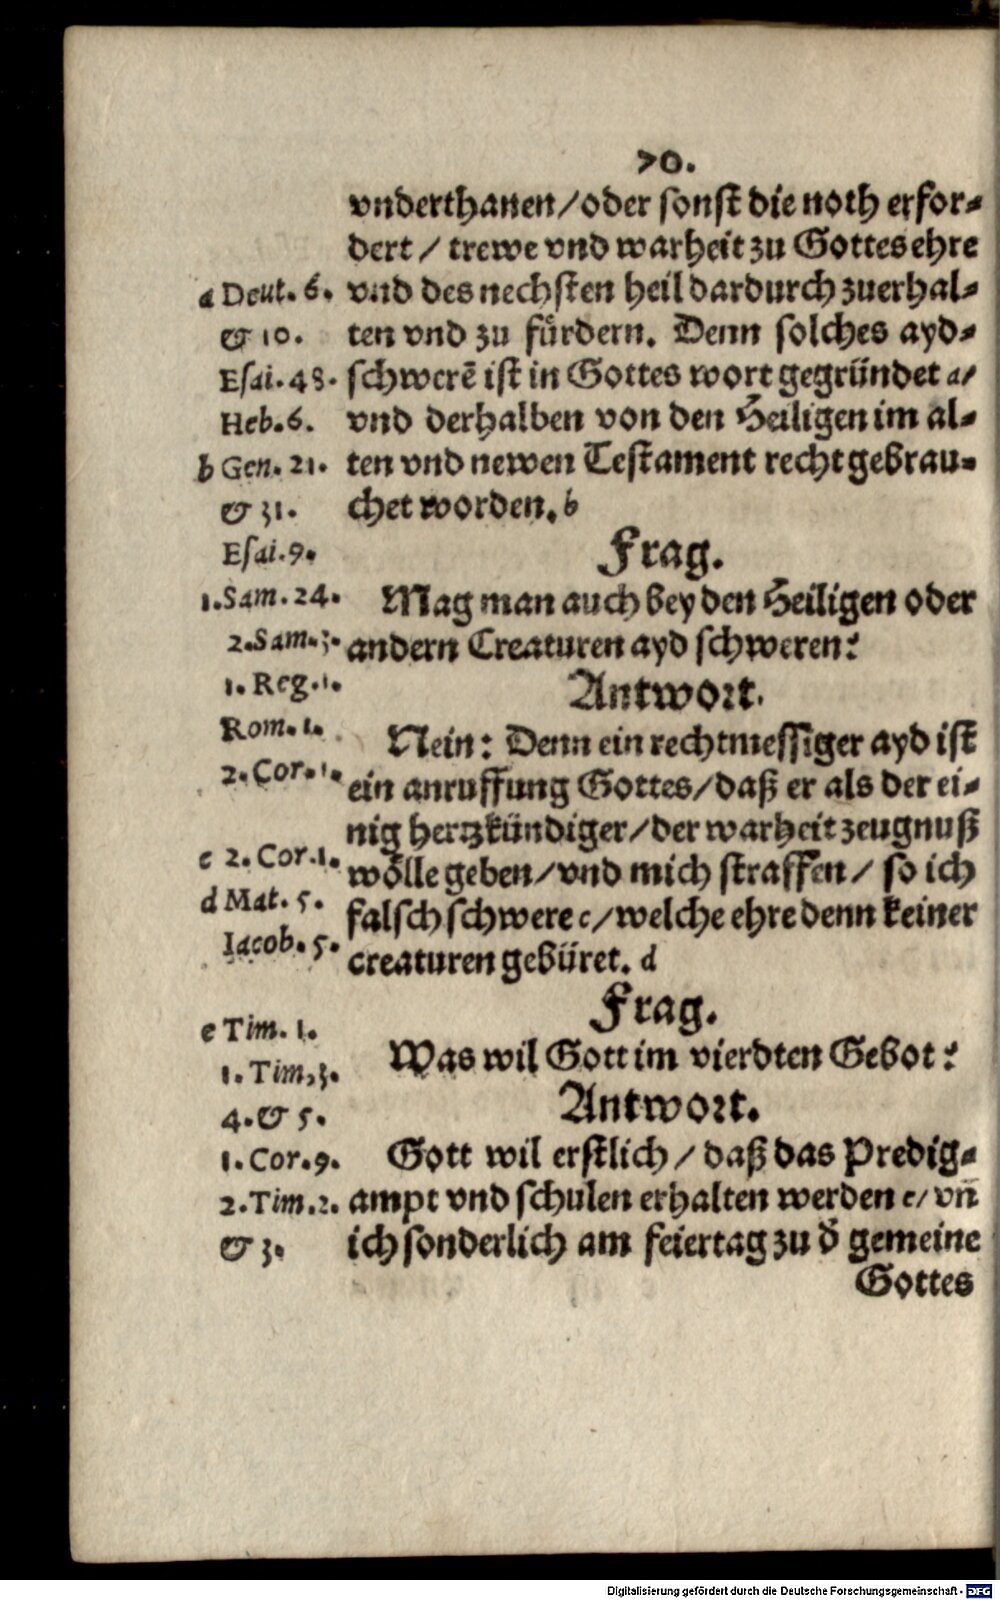 70.
vnderthanen/oder sonst die noth erfor-
dert / trewe vnd warheit zu Gottes ehre
vnd des nechsten heil dardurch zuerhal-
ten vnd zu fürdern. Denn solches ayd-
schwerē ist in Gottes wort gegründet a/
vnd derhalben von den Heiligen im al-
ten vnd newen Testament recht gebrau-
chet worden. b
Frag.
Mag man auch bey den Heiligen oder
andern Creaturen ayd schweren?
Antwort.
Nein: Denn ein rechtmessiger ayd ist
ein anruffung Gottes/daß er als der ei-
nig hertzkündiger/der warheit zeugnuß
wölle geben/vnd mich straffen/ so ich
falsch schwere c/welche ehre denn keiner
creaturen gebüret. d
Frag.
Was wil Gott im vierdten Gebot?
Antwort.
Gott wil erstlich/daß das Predig-
ampt vnd schulen erhalten werden e/ vñ
ich sonderlich am feiertag zu d̕ gemeine
Gottes
a Deut. 6.
& 10.
Esai. 48.
Heb. 6.
b Gen. 21.
& 31.
Esai. 9.
1. Sam. 24.
2. Sam. 3.
1. Reg. 1.
Rom. 1.
2. Cor. 1.
c 2. Cor. 1.
d Mat. 5.
Iacob. 5.
e Tim. 1.
1. Tim, 3.
4. & 5.
1. Cor. 9.
2. Tim. 2.
& 3.
Digitalisierung gefördert durch die Deutsche Forschungsgemeinschaft - DFG